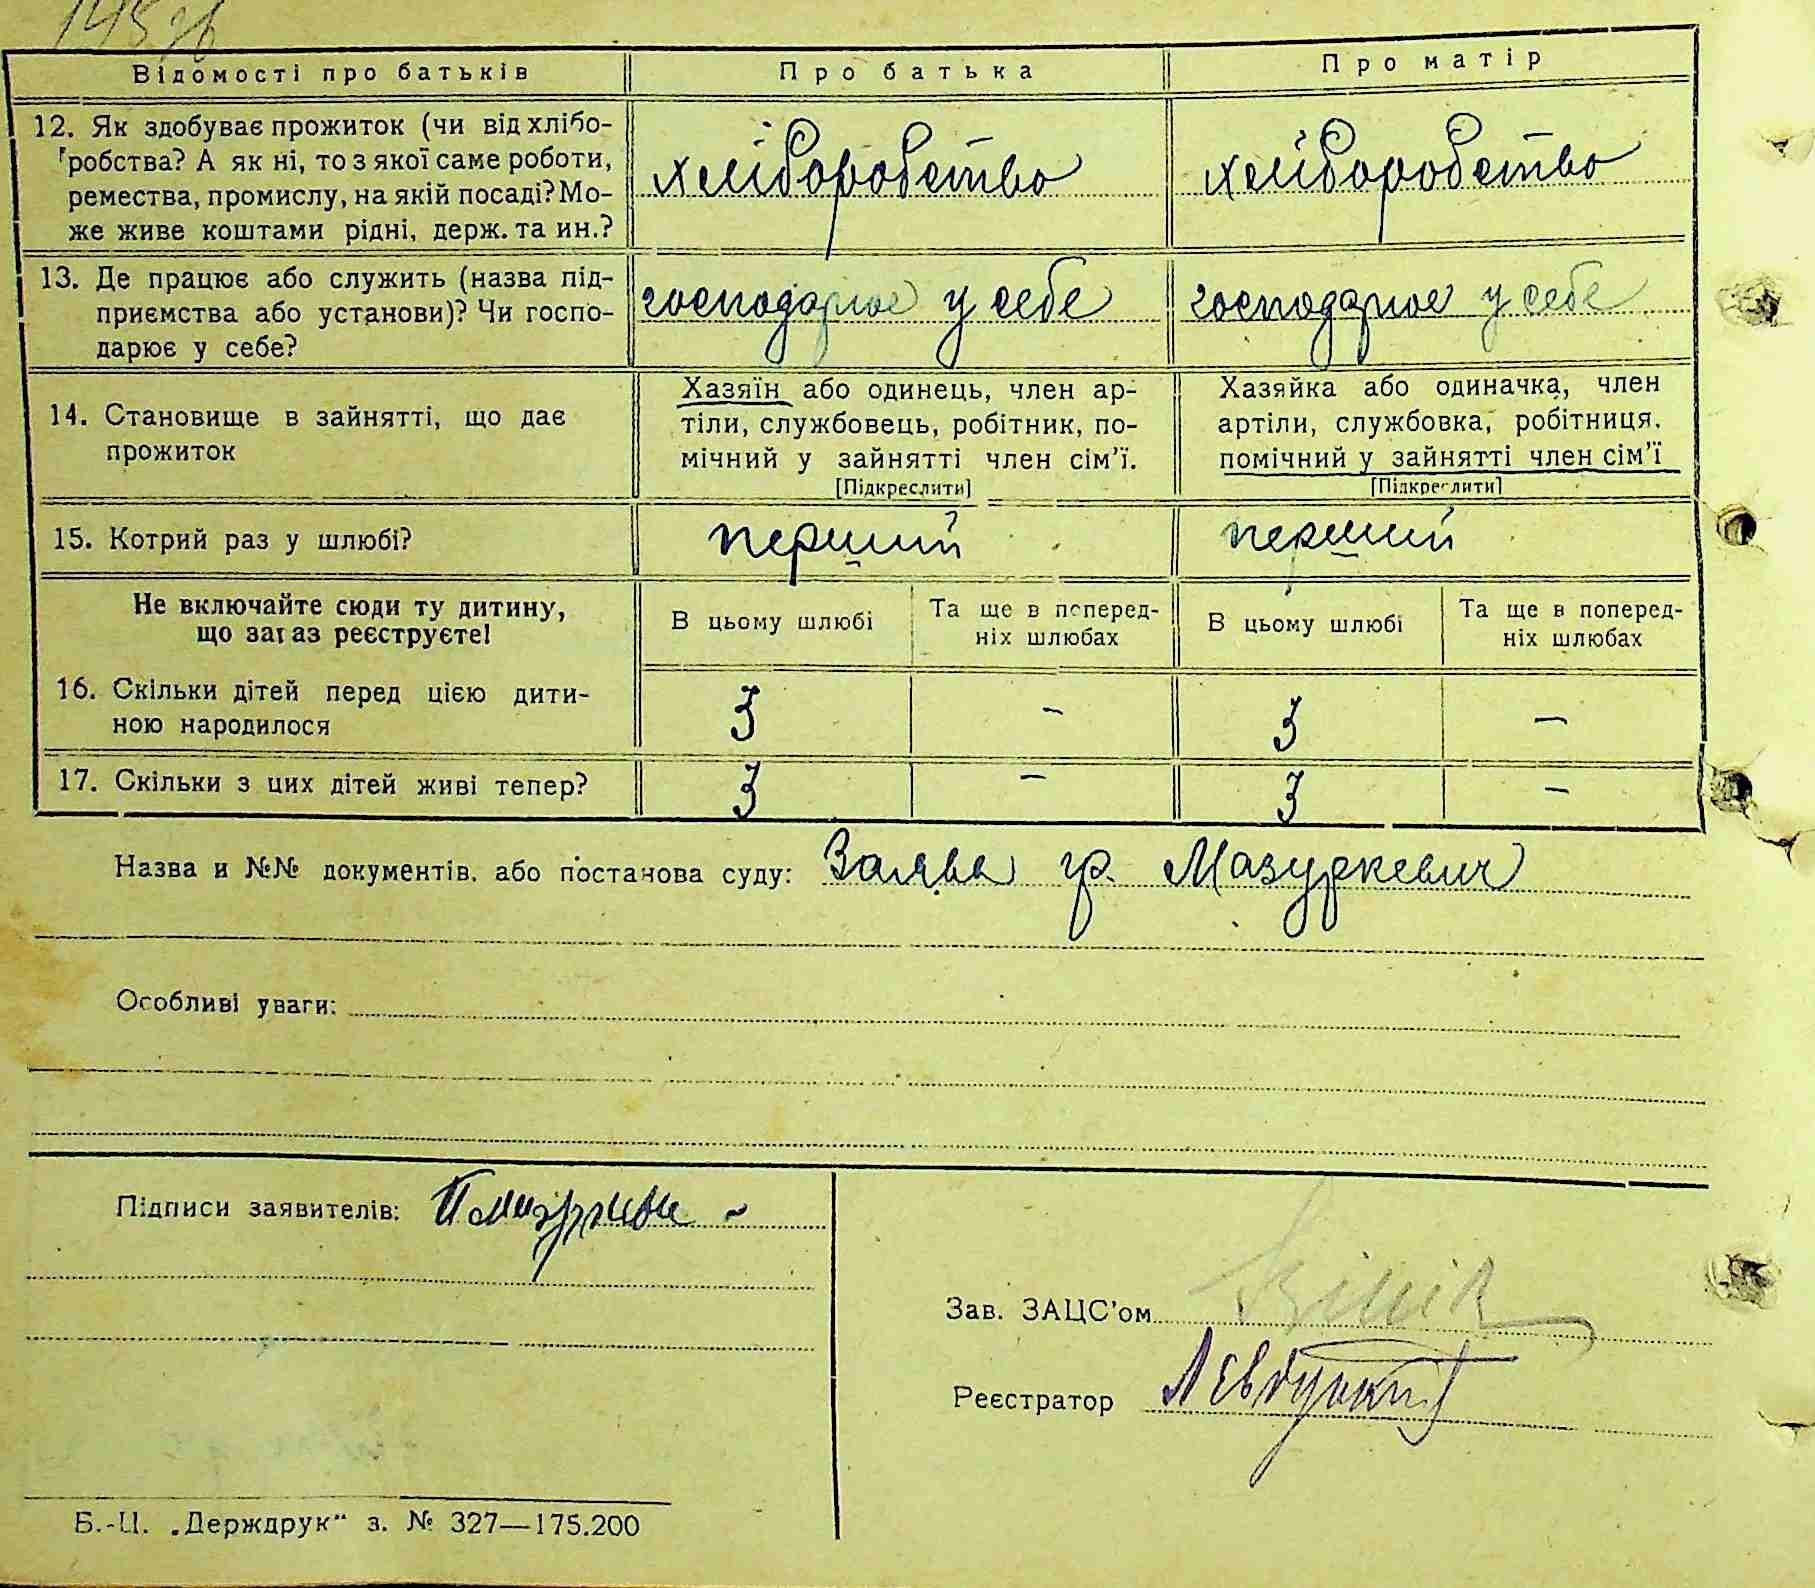 145 зв
Відомості про батьків Про батька Про матір
12. Як здобуває прожиток (чи від хлібо-
робства? А як ні, то з якої саме роботи,
ремества, промислу, на якій посаді? Мо-
же живе коштами рідні, держ. та ин.?
хліборобство хліборобство
13. Де працює або служить (назва під-
приємства або установи)? Чи госпо-
дарює у себе?
господарює у себе господарює у себе
14. Становище в зайнятті, що дає
прожиток
Хазяїн або одинець, член ар-
тіли, службовець, робітник, по-
мічний у зайнятті член сім'ї.
[Підкреслити]
Хазяйка або одиначка, член
артіли, службовка, робітниця.
помічний у зайнятті член сім'ї
[Підкреслити]
15. Котрий раз у шлюбі? перший перший
Не включайте сюди ту дитину,
що зараз реєструєте!
В цьому шлюбі Та ще в поперед-
ніх шлюбах В цьому шлюбі Та ще в поперед-
ніх шлюбах
16. Скільки дітей перед цією дити-
ною народилося 3 – 3 –
17. Скільки з цих дітей живі тепер? 3 – 3 –
Назва и №№ документів, або постанова суду: Заява гр. Мазуркевич
Особливі уваги:
Підписи заявителів:
Зав. ЗАЦС'ом
Реєстратор
Б.-Ц. „Держдрук" з. № 327—175.200